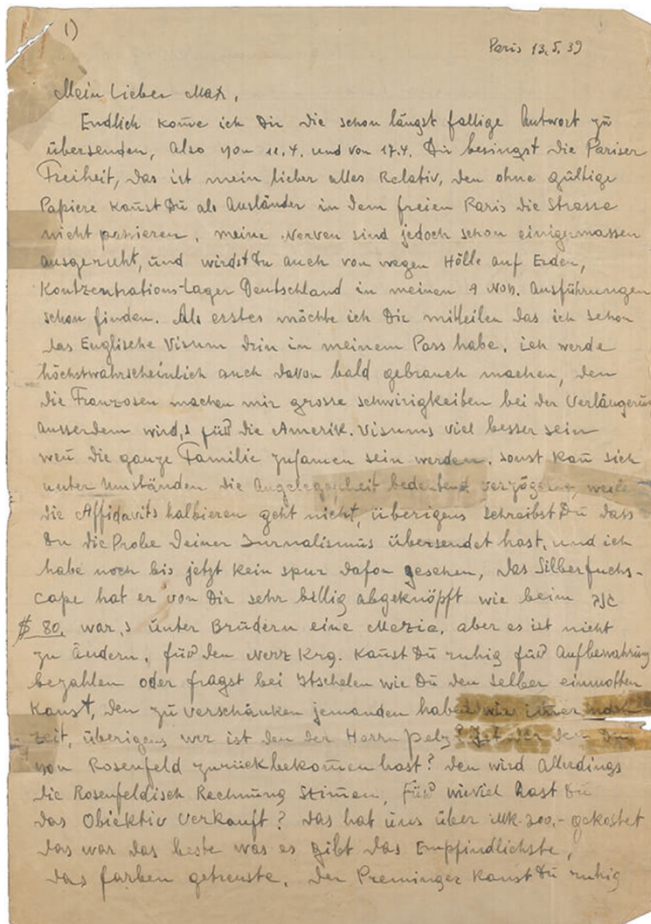 1)
Paris 13.5.39
Mein Lieber Max,
Endlich kome ich Dir die schon längst fallige Antwort zu
übersenden, Also von 11.4. und von 17.4. Du besingst die Pariser
Freiheit, Das ist mein lieber alles Relativ, den ohne gültige
Papiere kanst Du als Ausländer in dem freien Paris die Strasse
nicht passieren, meine Nerven sind jedoch schon einigermassen
ausgeruht, und wirdst Du auch von wegen Hölle auf Erden,
Kontzentrations-Lager Deutschland in meinen 9 Nov. Ausführungen
schon finden. Als erstes möchte ich Dir mitteilen das ich schon
das Englische Visum drin in meinem Pass habe, ich werde
höchstwahrscheinlich auch davon bald gebrauch machen, den
die Franzosen machen mir grosse schwirigkeiten bei der Verlängerun
ausserdem wird,s für die Amerik. Visums viel besser sein
wen die ganze Familie zusamen sein werden, sonst kan sich
unter Umständen die Angelegenheit bedeutend verzögern,
die Affidavits halbieren geht nicht, überigens schreibst Du dass
Du die Probe Deiner Jurnalismus übersendet hast, und ich
habe noch bis jetzt kein spur dafon gesehen, Das Silberfuchs-
cape hat er von Dir sehr billig abgeknöpft wie beim
$ 80. war,s unter Brüdern eine Mezia, aber es ist nicht
zu ändern, für den Nerz Krg. kanst Du ruhig für Aufbewahrung
bezahlen oder fragst bei Itschelen wie Du den selber einmotten
kanst, den zu verschänken jemanden haben wir imer noch
zeit, überigens wer ist den der Herrn Pelz? Ist der den Du
von Rosenfeld zurückbekomen hast? den wird Allerdings
die Rosenfeldisch Rechnung stimen, Für wieviel hast Du
das Obiektiv verkauft? das hat uns über Mk. 200,- gekostet
das war das beste was es gibt das Empfindlichste,
das farben getreuste, Der Preminger kanst Du ruhig